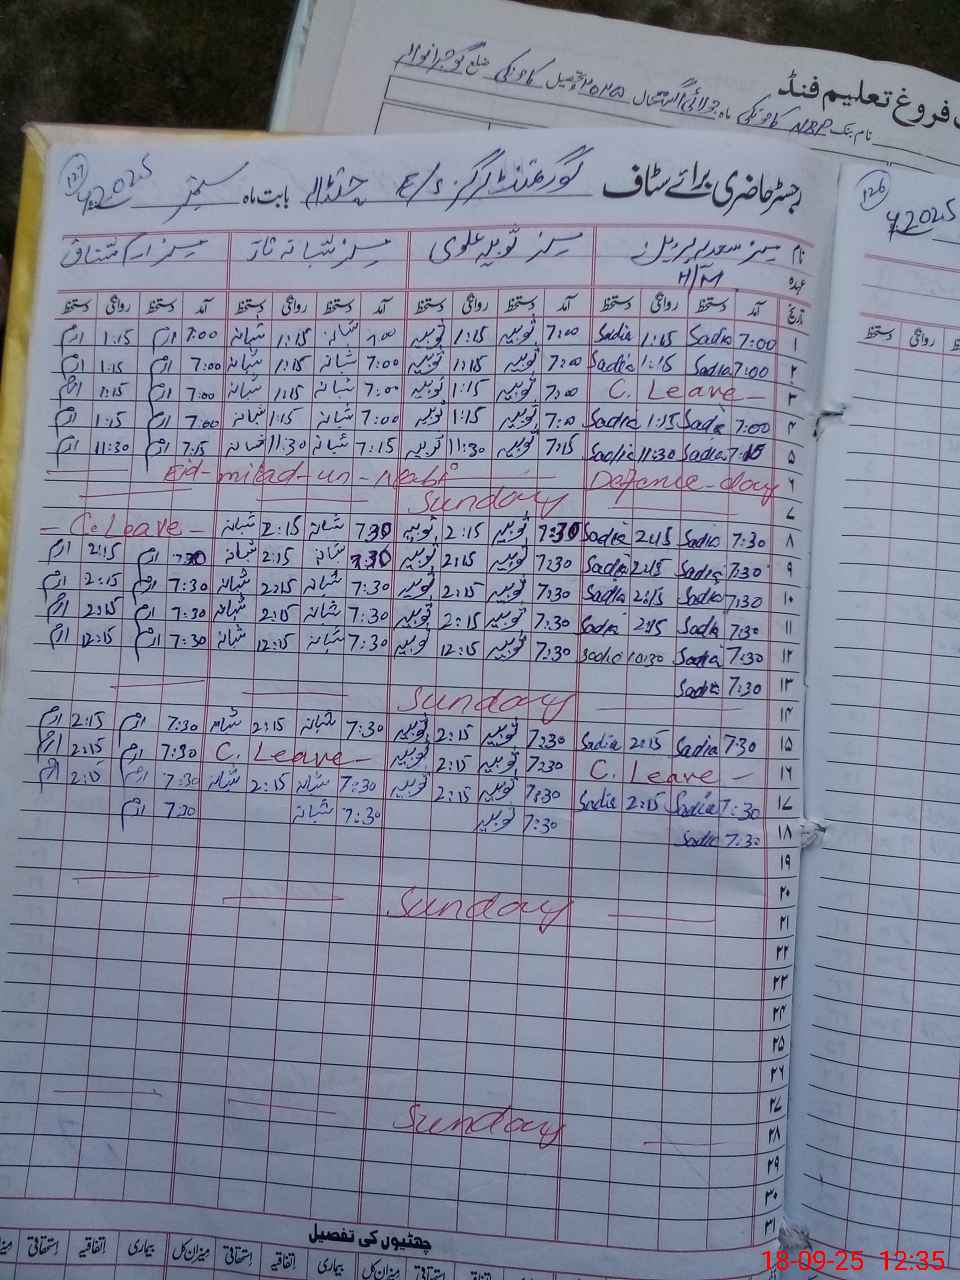 فروغ تعلیم فنڈ
نام بنک NBP کامونکی ماہ جولائی اگست تحصیل کامونکی ضلع گوجرانوالہ
رجسٹر حاضری برائے سٹاف گورنمنٹ گرلز E/S بابت ماہ ستمبر 2025 127
126 2025
نام مسز ثوبیہ علوی مسز شبانہ ناز مسز ارم مشتاق
عہدہ H/M
تاریخ آمد دستخط روانگی دستخط آمد دستخط روانگی دستخط آمد دستخط روانگی دستخط آمد دستخط روانگی دستخط
دستخط روانگی
۱ 7:00 Sadia 1:15 Sadia 7:00 ثوبیہ 1:15 ثوبیہ 7:00 شبانہ 1:15 شبانہ 7:00 ارم 1:15 ارم
۲ 7:00 Sadia 1:15 Sadia 7:00 ثوبیہ 1:15 ثوبیہ 7:00 شبانہ 1:15 شبانہ 7:00 ارم 1:15 ارم
۳ C. Leave 7:00 ثوبیہ 1:15 ثوبیہ 7:00 شبانہ 1:15 شبانہ 7:00 ارم 1:15 ارم
۴ 7:00 Sadia 1:15 Sadia 7:00 ثوبیہ 1:15 ثوبیہ 7:00 شبانہ 1:15 شبانہ 7:00 ارم 1:15 ارم
۵ 7:15 Sadia 11:30 Sadia 7:15 ثوبیہ 11:30 ثوبیہ 7:15 شبانہ 11:30 شبانہ 7:15 ارم 11:30 ارم
۶ Eid-milad-un-Nabi Defence-day
۷ Sunday
۸ 7:30 Sadia 2:15 Sadia 7:30 ثوبیہ 2:15 ثوبیہ 7:30 شبانہ 2:15 شبانہ C. Leave
۹ 7:30 Sadia 2:15 Sadia 7:30 ثوبیہ 2:15 ثوبیہ 7:30 شبانہ 2:15 شبانہ 7:30 ارم 2:15 ارم
۱۰ 7:30 Sadia 2:15 Sadia 7:30 ثوبیہ 2:15 ثوبیہ 7:30 شبانہ 2:15 شبانہ 7:30 ارم 2:15 ارم
۱۱ 7:30 Sadia 2:15 Sadia 7:30 ثوبیہ 2:15 ثوبیہ 7:30 شبانہ 2:15 شبانہ 7:30 ارم 2:15 ارم
۱۲ 7:30 Sadia 10:30 Sadia 7:30 ثوبیہ 12:15 ثوبیہ 7:30 شبانہ 12:15 شبانہ 7:30 ارم 12:15 ارم
۱۳ 7:30 Sadia
۱۴ Sunday
۱۵ 7:30 Sadia 2:15 Sadia 7:30 ثوبیہ 2:15 ثوبیہ 7:30 شبانہ 2:15 شبانہ 7:30 ارم 2:15 ارم
۱۶ C. Leave 7:30 ثوبیہ 2:15 ثوبیہ C. Leave 7:30 ارم 2:15 ارم
۱۷ 7:30 Sadia 2:15 Sadia 7:30 ثوبیہ 2:15 ثوبیہ 7:30 شبانہ 2:15 شبانہ 7:30 ارم 2:15 ارم
۱۸ 7:30 Sadia 7:30 ثوبیہ 7:30 شبانہ 7:30 ارم
۱۹
۲۰
۲۱ Sunday
۲۲
۲۳
۲۴
۲۵
۲۶
۲۷
۲۸ Sunday
۲۹
۳۰
۳۱
چھٹیوں کی تفصیل
بیماری اتفاقیہ استحقاقی میزان کل بیماری اتفاقیہ استحقاقی میزان کل
18-09-25 12:35